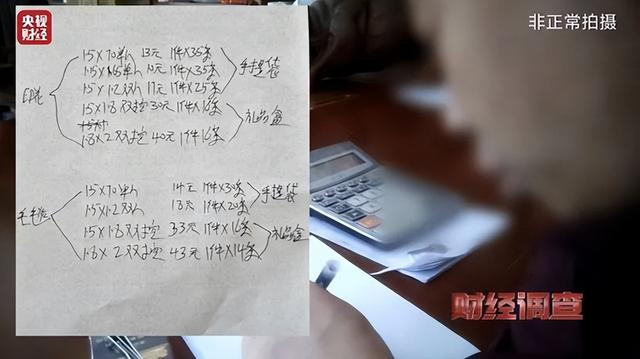 央视
财经
非正常拍摄
1.5×70单人 13元 1件×35条
10元 1件×35条
1.5×1.2双人 17元 1件×25条
手提袋
印花
1.5×1.8双控 30元 1件×18条
1.8×2双控 40元 1件16条
礼品盒
1.5×70单人 14元 1件×30条
1.5×1.2双人 18元 1件×20条
手提袋
1.5×1.8双控 33元 1件×16条
1.8×2双控 43元 1件×14条
礼品盒
财经调查